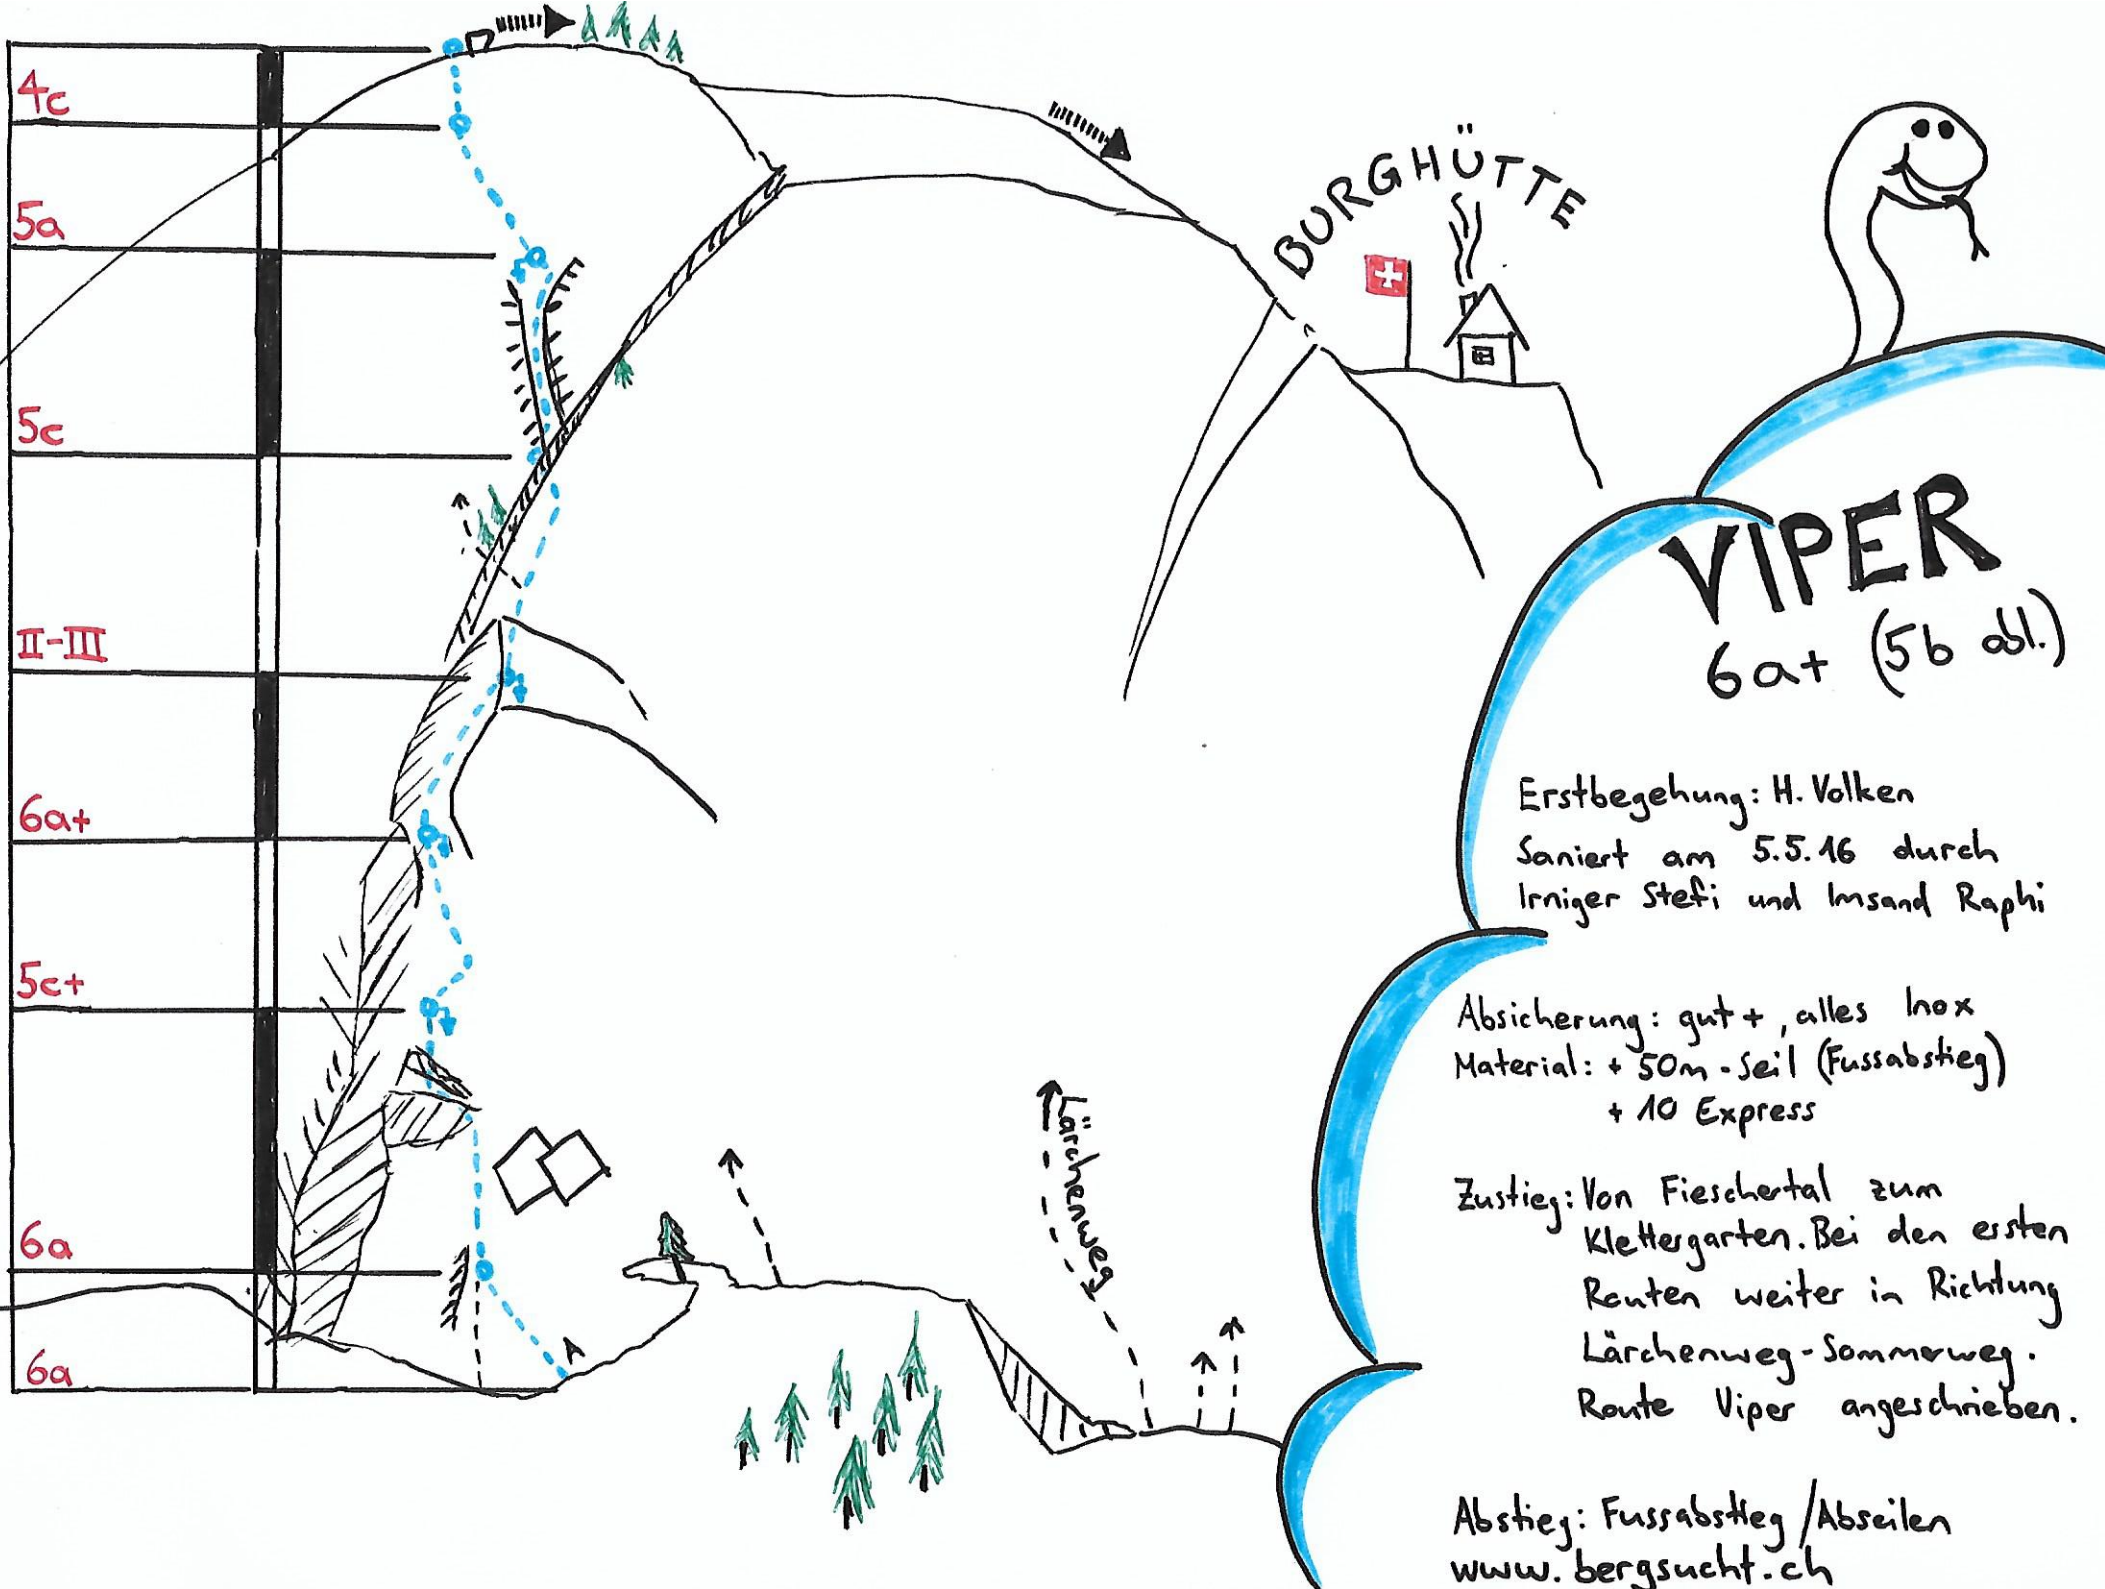 4c
5a
5c
II-III
6a+
5c+
6a
6a
BURGHÜTTE
Lärchenweg
VIPER
6a+ (5b obl.)
Erstbegehung: H. Volken
Saniert am 5.5.16 durch
Irniger Stefi und Imsand Raphi
Absicherung: gut+, alles Inox
Material: + 50m-Seil (Fussabstieg)
+ 10 Express
Zustieg: Von Fieschertal zum
Klettergarten. Bei den ersten
Routen weiter in Richtung
Lärchenweg-Sommerweg.
Route Viper angeschrieben.
Abstieg: Fussabstieg / Abseilen
www.bergsucht.ch